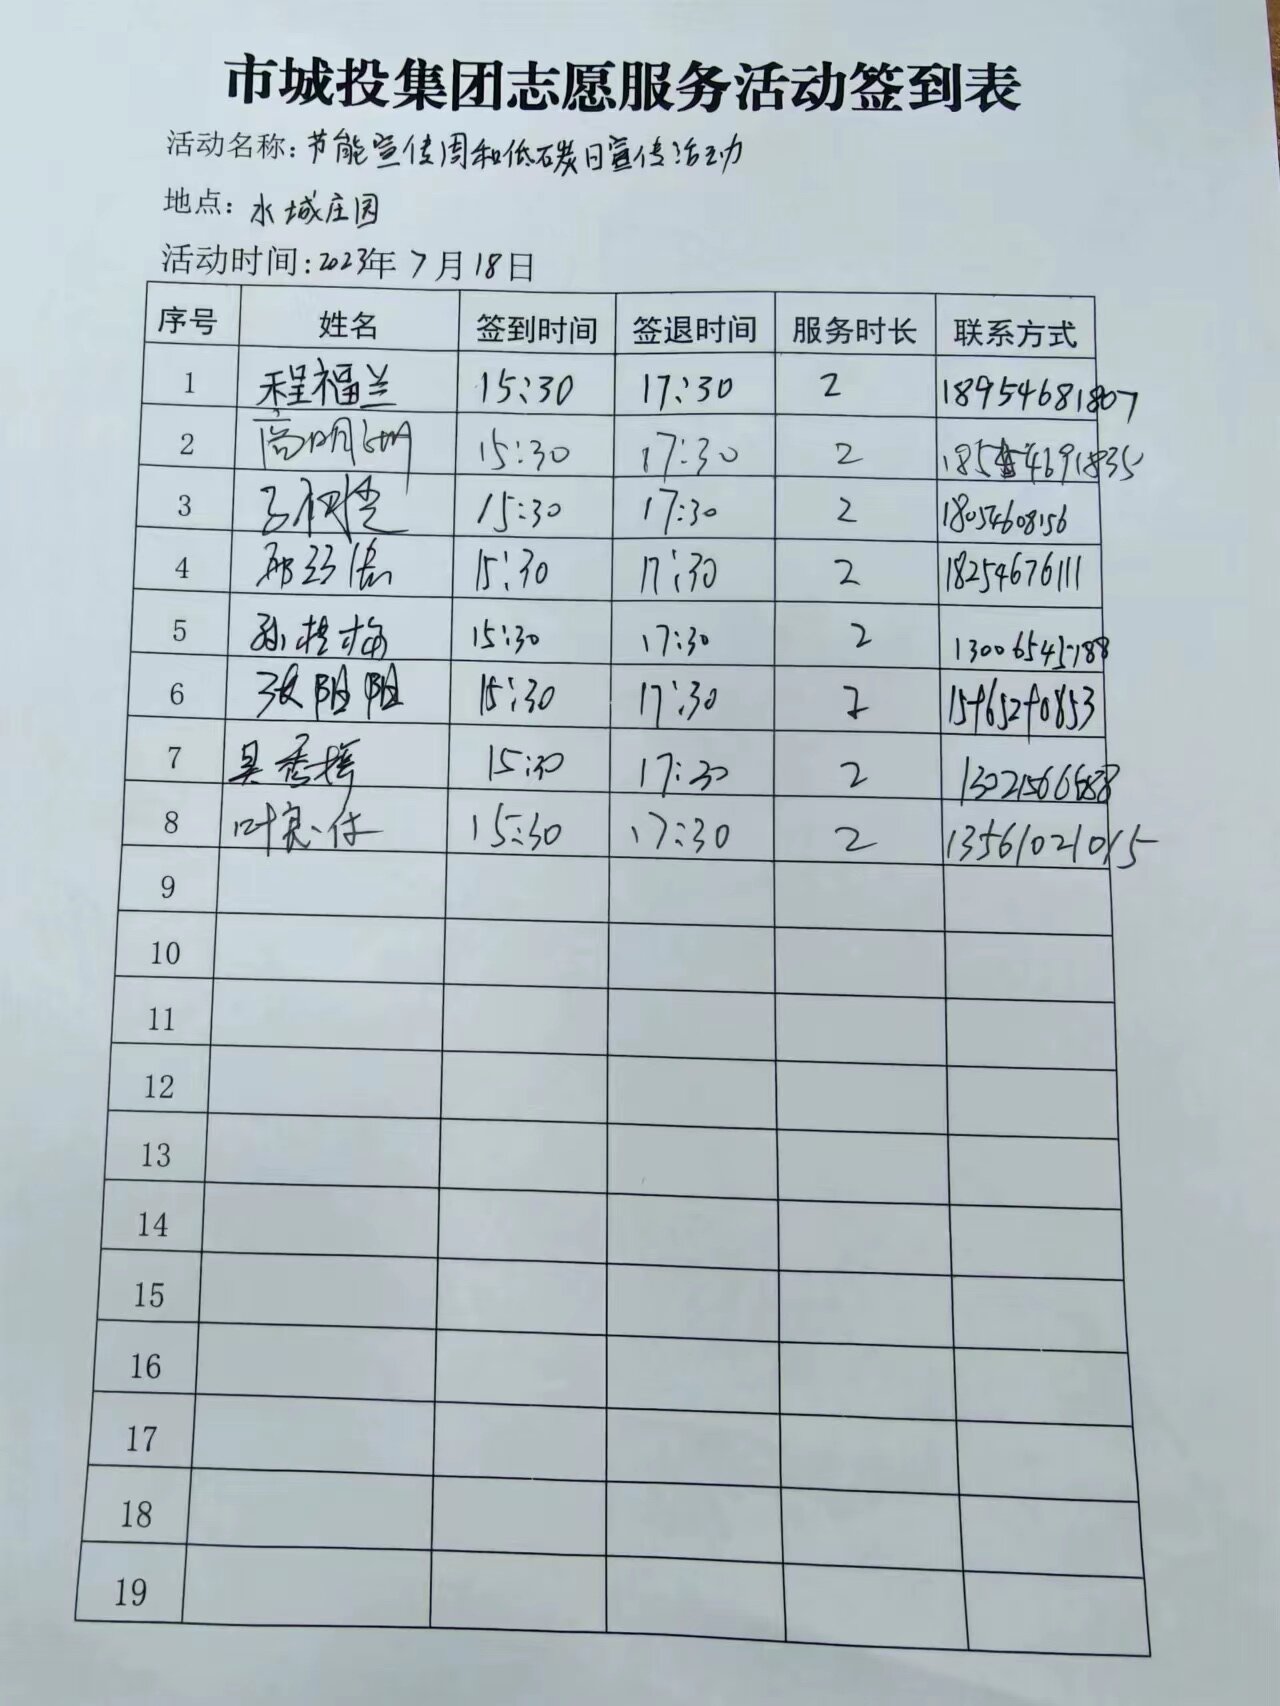 市城投集团志愿服务活动签到表
活动名称:节能宣传周和低碳日宣传活动
地点:水城庄园
活动时间:2023年7月18日
序号 姓名 签到时间 签退时间 服务时长 联系方式
1 程福兰 15:30 17:30 2 18954681807
2 15:30 17:30 2
3 15:30 17:30 2 18054608156
4 15:30 17:30 2 18254676111
5 孙桂梅 15:30 17:30 2 13006545188
6 15:30 17:30 2
7 15:30 17:30 2
8 15:30 17:30 2 13561021015
9
10
11
12
13
14
15
16
17
18
19